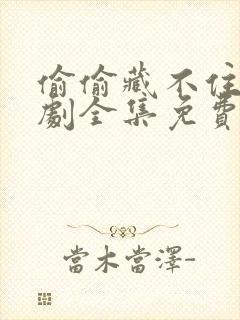 偷偷藏不住
劇全集免費
當木當澤-